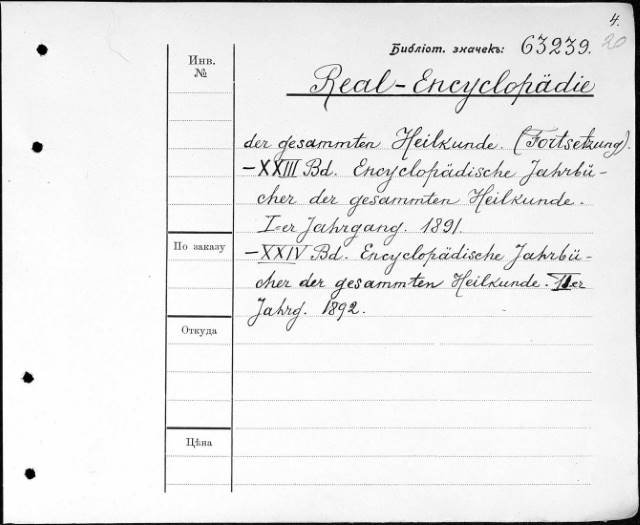 4.
Библіот. значекъ: 63239. 20
Инв.
№
Real-Encyclopädie
der gesammten Heilkunde. (Fortsetzung).
– XXIII Bd. Encyclopädische Jahrbü-
cher der gesammten Heilkunde.
I-er Jahrgang. 1891.
По заказу
– XXIV Bd. Encyclopädische Jahrbü-
cher der gesammten Heilkunde. II er
Jahrg. 1892.
Откуда
Цѣна